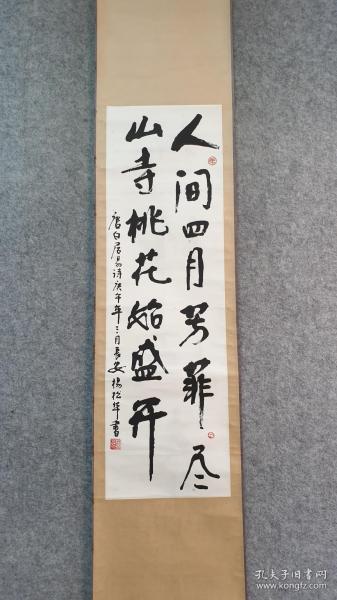 人间四月芳菲尽
山寺桃花始盛开
唐白居易诗庚午年三月长安杨松年书
孔夫子旧书网
www.kongfz.com